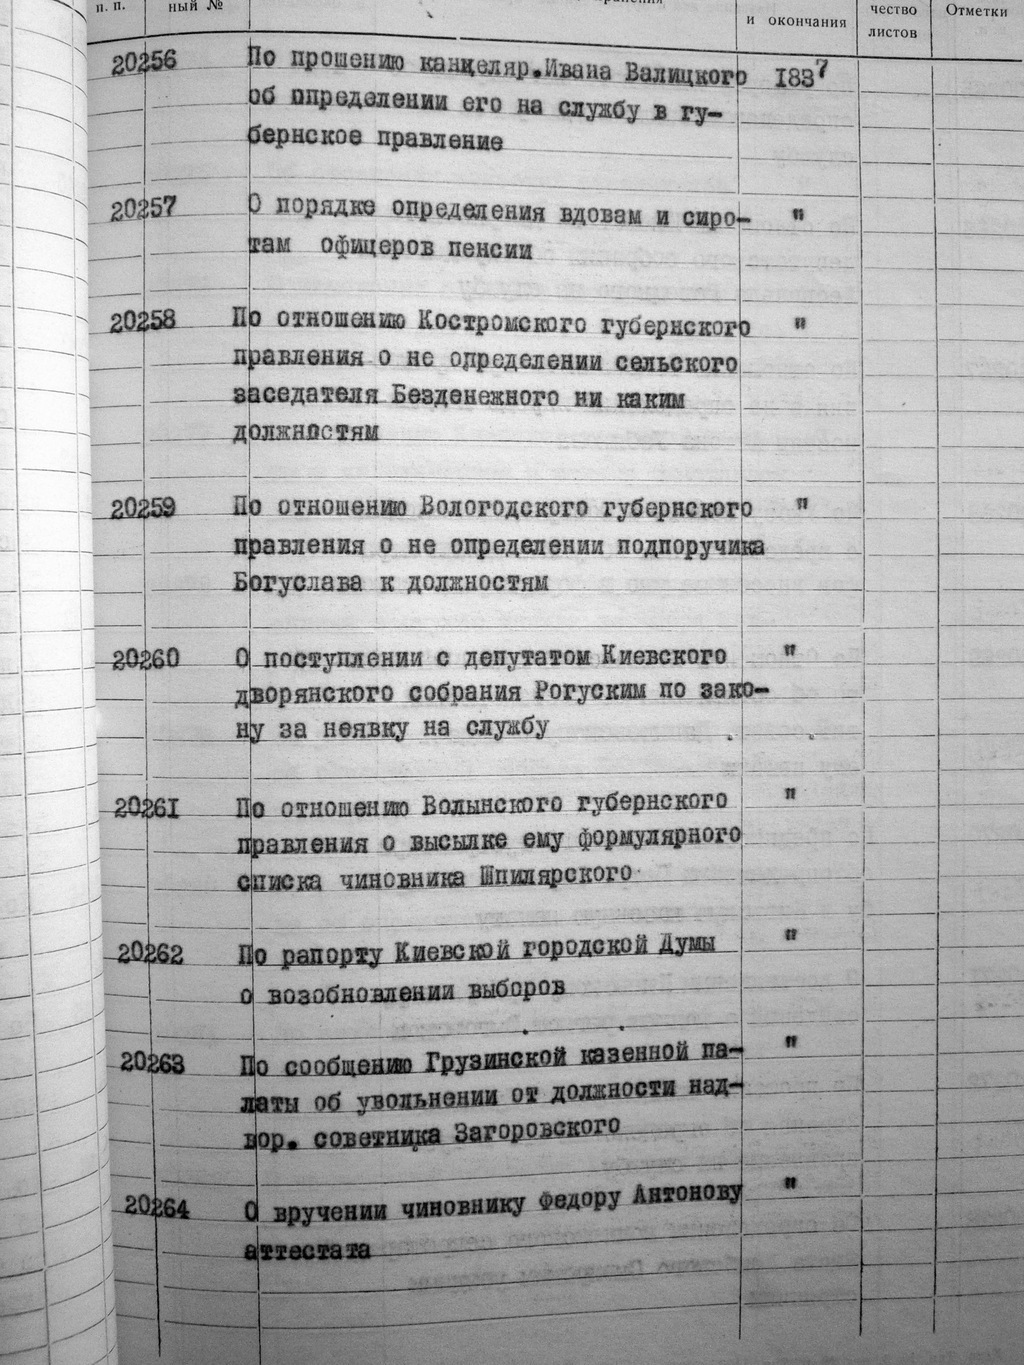 п. п.
ный №
и окончания
чество
листов
Отметки
20256 По прошению канцеляр.Ивана Валицкого 1837
об определении его на службу в гу-
бернское правление
20257 О порядке определения вдовам и сиро- "
там офицеров пенсии
20258 По отношению Костромского губернского "
правления о не определении сельского
заседателя Безденежного ни каким
должностям
20259 По отношению Вологодского губернского "
правления о не определении подпоручика
Богуслава к должностям
20260 О поступлении с депутатом Киевского "
дворянского собрания Рогуским по зако-
ну за неявку на службу
20261 По отношению Волынского губернского "
правления о высылке ему формулярного
списка чиновника Шпилярского
20262 По рапорту Киевской городской Думы "
о возобновлении выборов
20263 По сообщению Грузинской казенной па- "
латы об увольнении от должности над-
вор. советника Загоровского
20264 О вручении чиновнику Федору Антонову "
аттестата